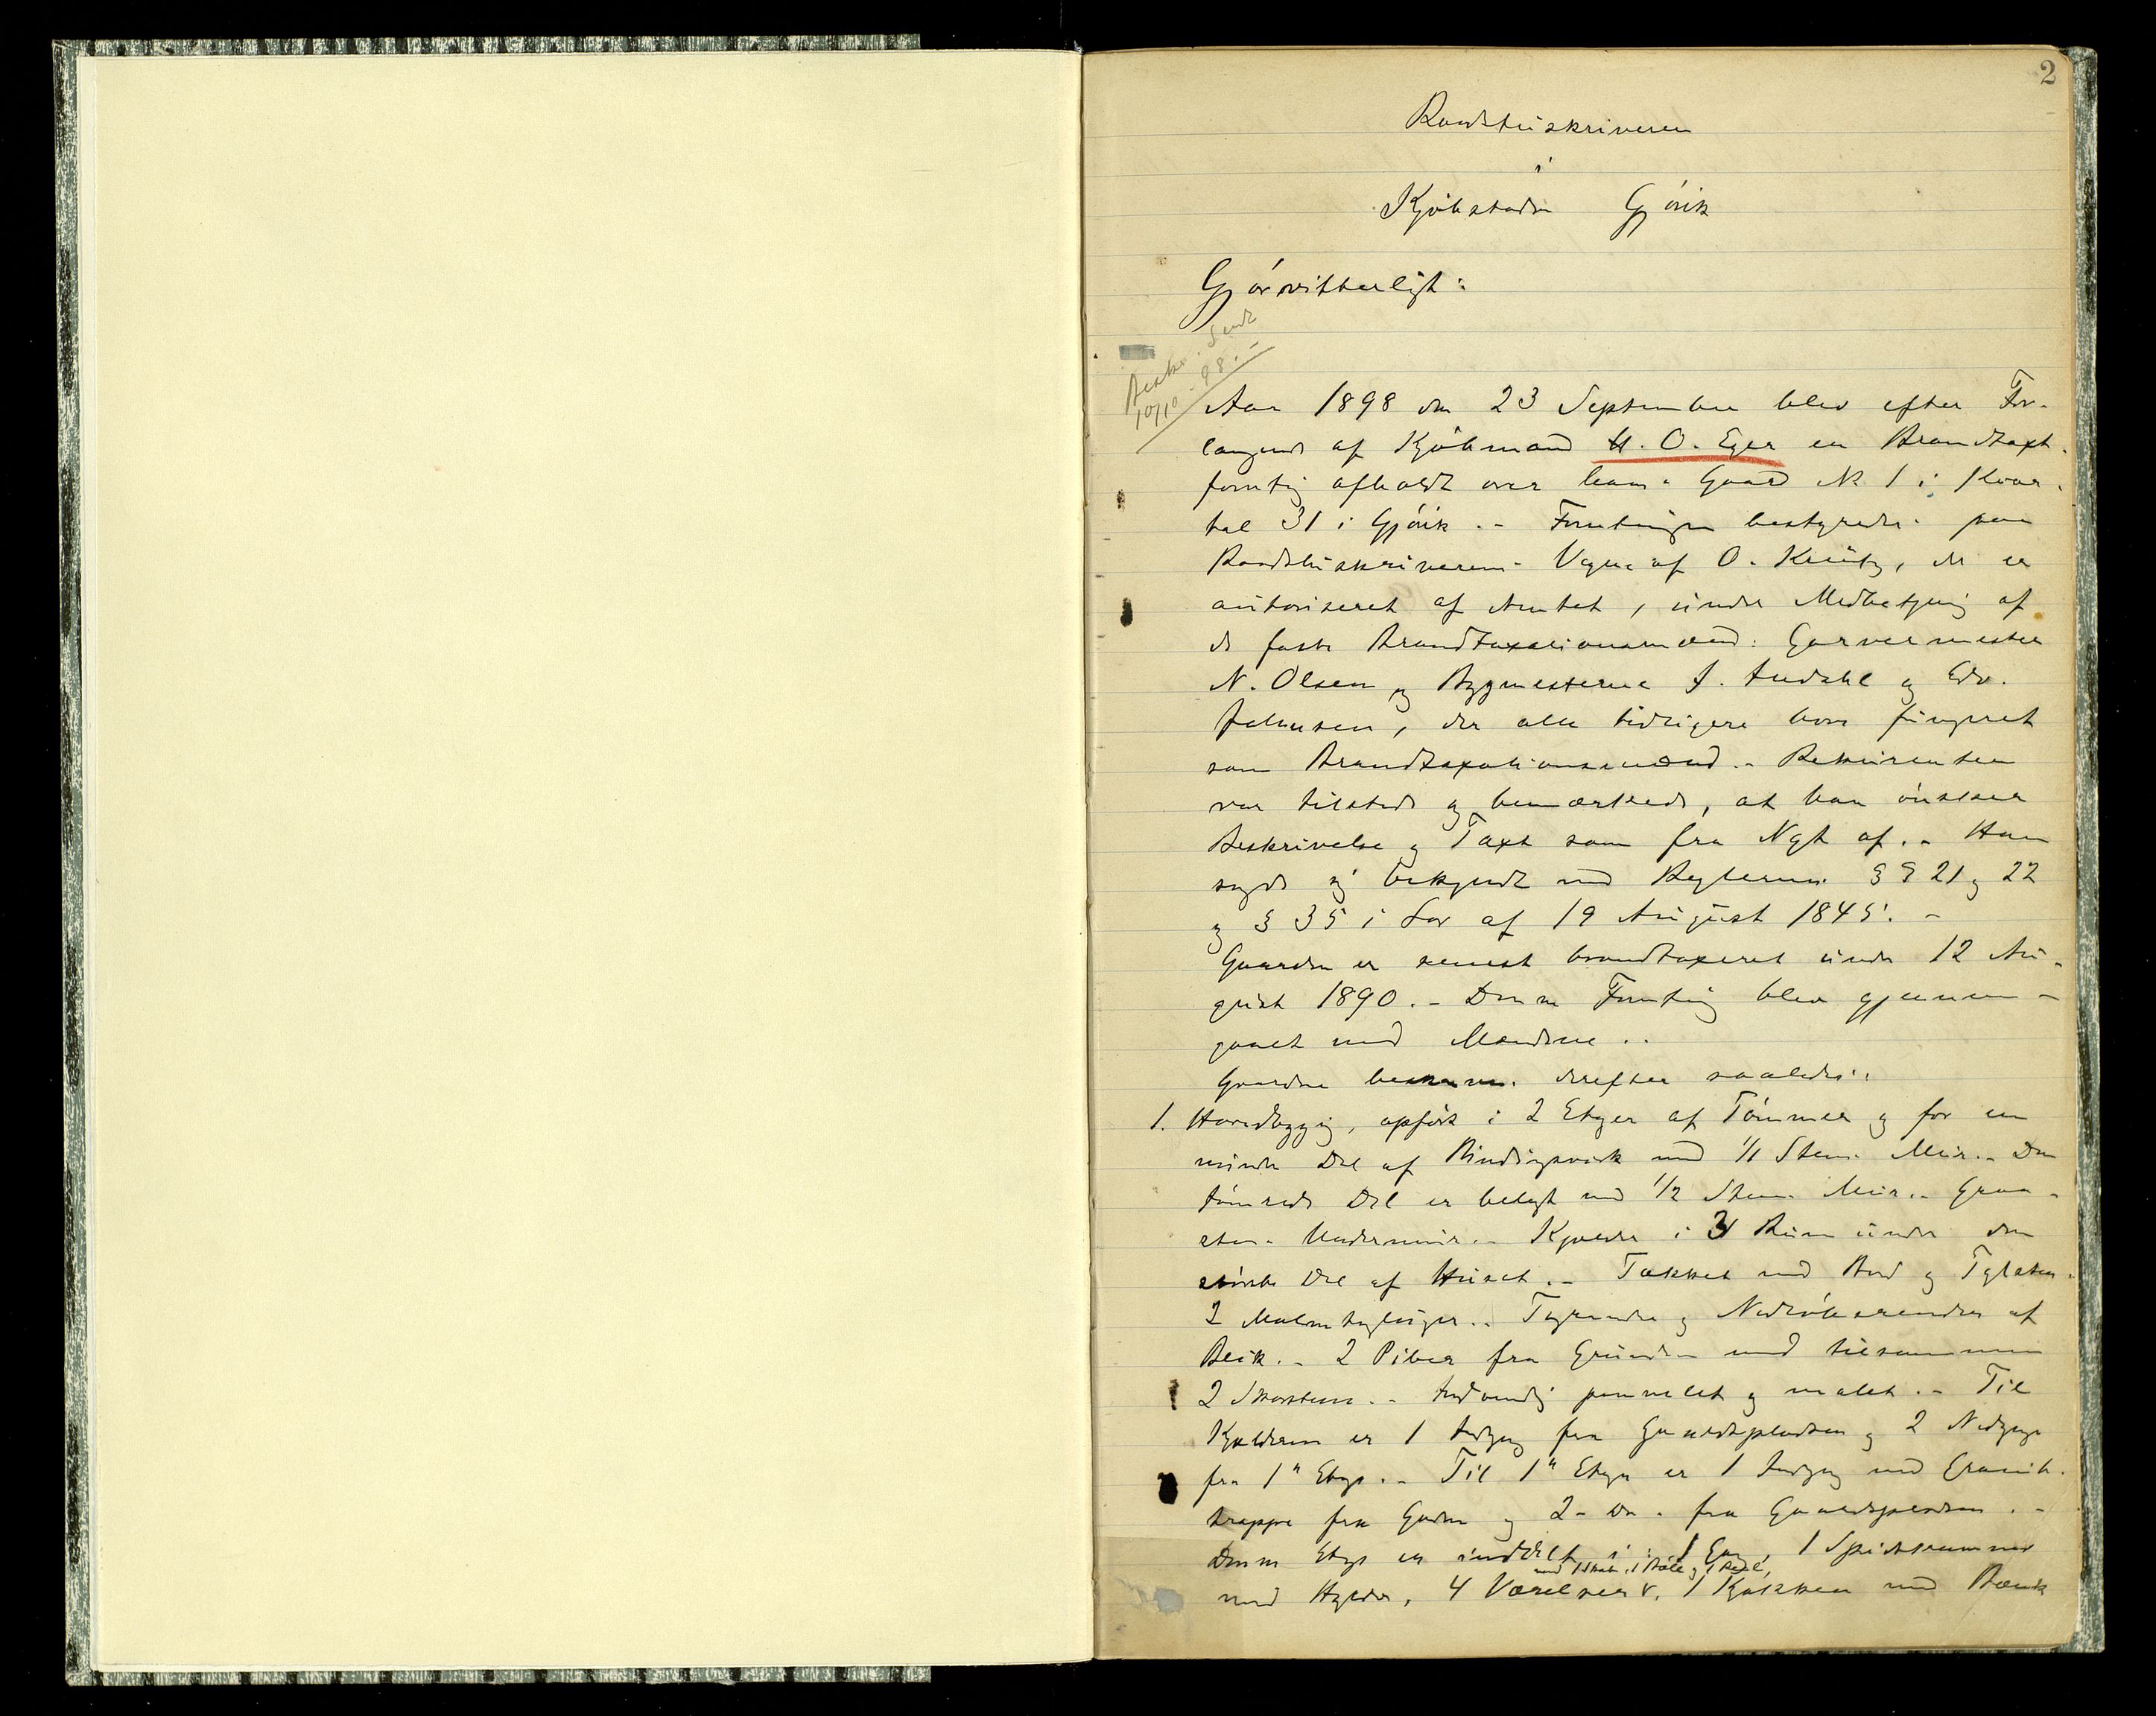 2
Raadstuskriveren
i
Kjøbstaden Gjøvik
Gjør vitterligt:
Beskr. Sendt
10/10 - 98.-
Aar 1898 den 23 September blev efter For-
langende af Kjøbmand H. O. Eger en Brandtaxt-
forretning afholdt over hans Gaard No 1 i Kvar-
tal 31 i Gjøvik.- Forretningen bestyredes paa
Raadstuskriverens Vegne af O. , der er
autoriseret af Amtet, under Medbetjening af
de faste Brandtaxationsmænd: Garvermester
N. Olsen og Bygmesterne J. Audahl og Edv.
Johnsen, der alle tidligere have fungeret
som Brandtaxationsmænd.- Rekvirenten
var tilstede og bemærkede, at han ønsker
Beskrivelse og Taxt som fra Nyt af.- Han
sagde sig bekjendt med Reglerne i §§ 21 og 22
og § 35 i Lov af 19 August 1845.-
Gaarden er senest brandtaxeret under 12 Au-
gust 1890.- Denne Forretning blev gjennem-
gaaet med Mændene..
Gaarden beskrives derefter saaledes:
1. Hovedbygning, opført i 2 Etager af Tømmer og for en
mindre Del af Bindingsværk med 1/1 Stens Mur.- Den
tømrede Del er belagt med 1/2 Stens Mur.- Graa-
stens Undermur.- Kjælder i 3 Rum under den
største Del af Huset.- Tækket med Bord og Tagsten.
2 Takrender og Nedløbsrender af
Blik.- 2 Piber fra Grunden med tilsammen
2 Skorstene.- Indvendig panelet og malet.- Til
Kjælderen er 1 Indgang fra Gaardspladsen og 2 Nedgange
fra 1ste Etage.- Til 1ste Etage er 1 Indgang med Granit-
trappe fra Gaden og 2 - Do - fra Gaardspladsen.-
Denne Etage er inddelt i: 1 Gang, 1 Spiskammer
med 1 Skab,
med Hylder, 4 Værelser, 1 Kjøkken med Bænk